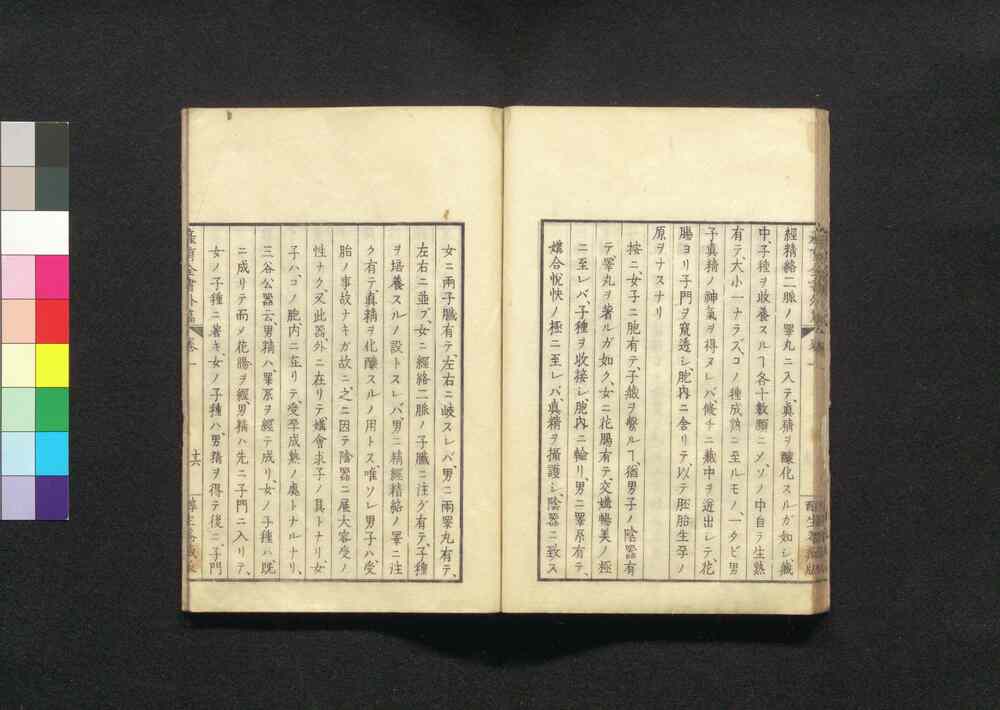 經精絡二脈ノ睪丸ニ入テ、眞精ヲ釀化スルガ如シ、蔵
中、子種ヲ收養スルヿ各十數顆ニメ、ソノ中自ラ生熟
有テ、大小一ナラズ、コノ種成熟ニ至ルモノ、一タビ男
子眞精ノ神氣ヲ得ヌレバ、倏チニ蔵中ヲ迸出レテ、花
腸ヨリ子門ヲ竄透シ、胞内ニ舎リテ以テ胚胎生孕ノ
原ヲナスナリ
按ニ、女子ニ胞有テ、子蔵ヲ繋ルヿ、猶男子ノ陰器有
テ、睪丸ヲ著ルガ如ク、女ニ花腸有テ、交媾暢美ノ極
ニ至レバ、子種ヲ收接シ、胞内ニ輸リ、男ニ睪系有テ、
媾合悅快ノ極ニ至レバ、眞精ヲ攝護シ、陰器ニ致ス
女ニ兩子臓有テ、左右ニ岐スレバ、男ニ兩睪丸有テ、
左右ニ並ブ、女ニ經絡二脈ノ子臓ニ注グ有テ、子種
ヲ培養スルノ設トスレバ、男ニ精經精絡ノ睪ニ注
ク有テ、眞精ヲ化釀スルノ用トス、唯ソレ男子ハ受
胎ノ事故ナキガ故ニ、之ニ因テ陰器ニ展大容受ノ
性ナク、又此器、外ニ在リテ、媾會求子ノ具トナリ、女
子ハ、コノ胞内ニ在リテ、受孕成熟ノ處トナルナリ、
三谷公器云、男精ハ、睪系ヲ經テ成リ、女ノ子種ハ、既
ニ成リテ而メ花腸ヲ經、男精ハ先ニ子門ニ入リテ、
女ノ子種ニ著キ、女ノ子種ハ、男精ヲ得テ後ニ、子門
産育全書外篇 卷一 十六